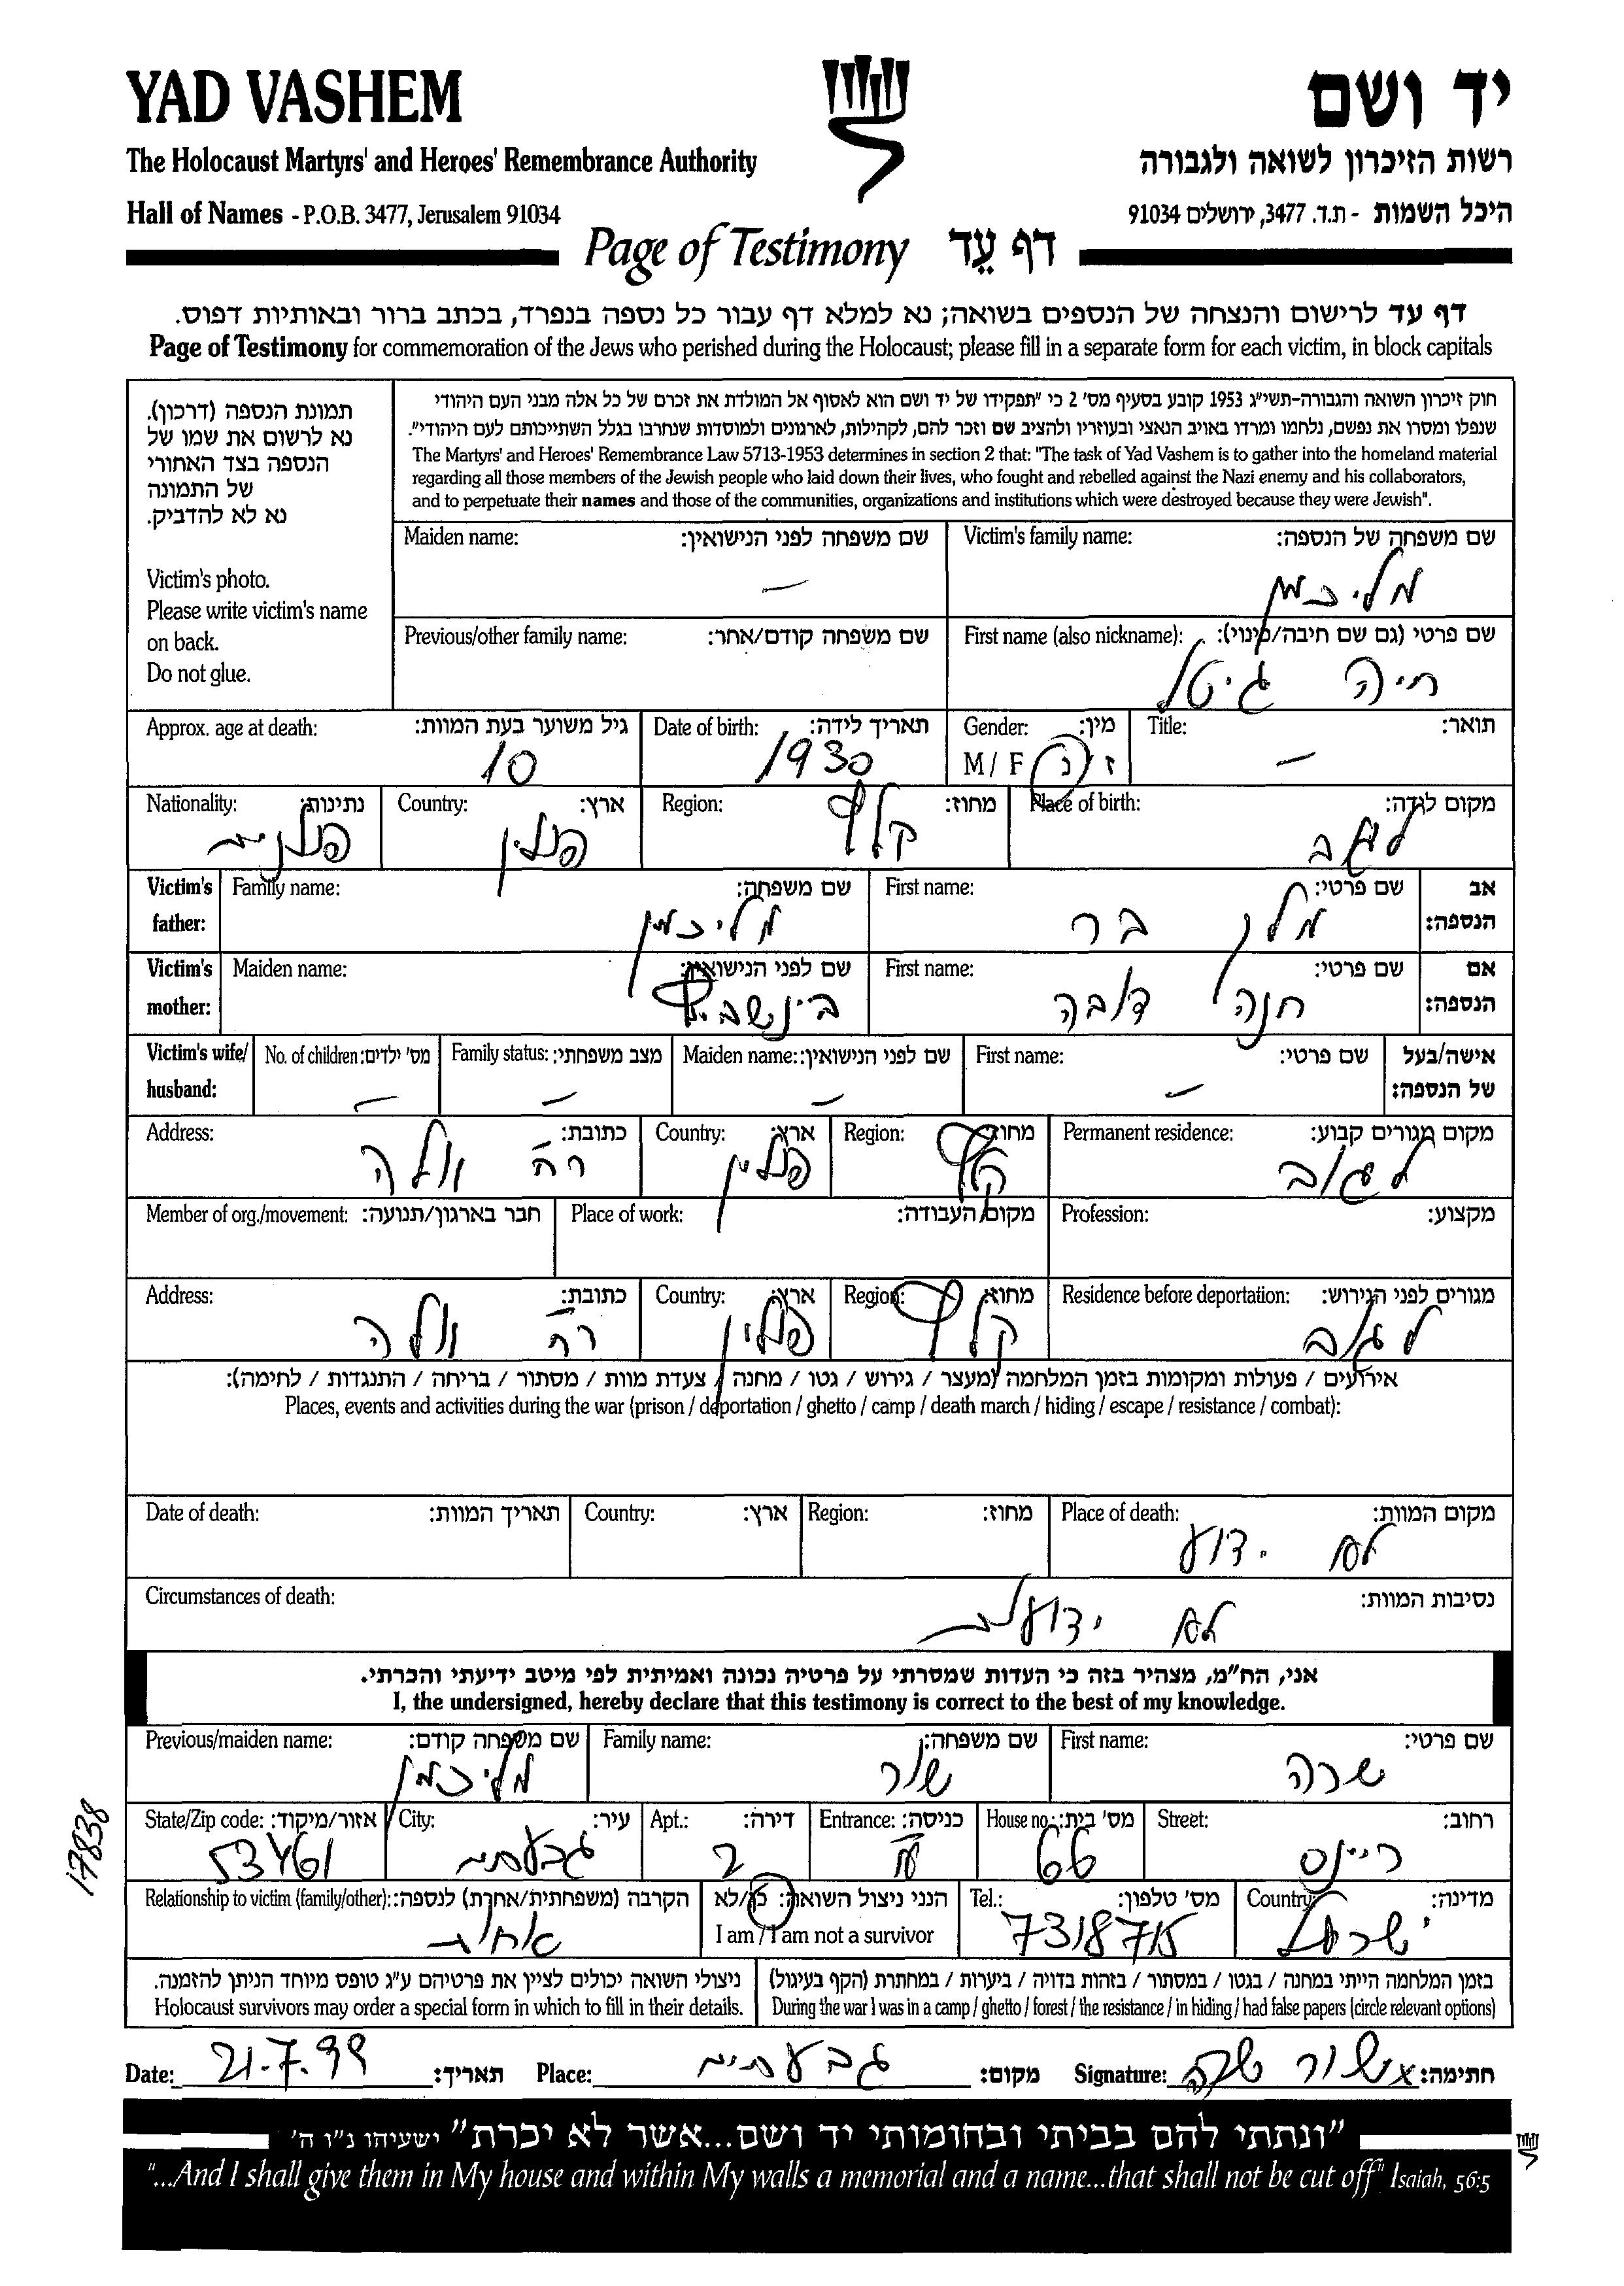 YAD VASHEM
יד ושם
The Holocaust Martyrs' and Heroes' Remembrance Authority
רשות הזיכרון לשואה ולגבורה
Hall of Names - P.O.B. 3477, Jerusalem 91034
היכל השמות - ת.ד. 3477, ירושלים 91034
Page of Testimony דף עֵד
דף עד לרישום והנצחה של הנספים בשואה; נא למלא דף עבור כל נספה בנפרד, בכתב ברור ובאותיות דפוס.
Page of Testimony for commemoration of the Jews who perished during the Holocaust; please fill in a separate form for each victim, in block capitals
תמונת הנספה (דרכון).
נא לרשום את שמו של
הנספה בצד האחורי
של התמונה
נא לא להדביק.
Victim's photo.
Please write victim's name
on back.
Do not glue.
חוק זיכרון השואה והגבורה-תשי״ג 1953 קובע בסעיף מס' 2 כי "תפקידו של יד ושם הוא לאסוף אל המולדת את זכרם של כל אלה מבני העם היהודי
שנפלו ומסרו את נפשם, נלחמו ומרדו באויב הנאצי ובעוזריו ולהציב שם וזכר להם, לקהילות, לארגונים ולמוסדות שנחרבו בגלל השתייכותם לעם היהודי".
The Martyrs' and Heroes' Remembrance Law 5713-1953 determines in section 2 that: "The task of Yad Vashem is to gather into the homeland material
regarding all those members of the Jewish people who laid down their lives, who fought and rebelled against the Nazi enemy and his collaborators,
and to perpetuate their names and those of the communities, organizations and institutions which were destroyed because they were Jewish".
Victim's family name: שם משפחה של הנספה:
מליכמן
Maiden name: שם משפחה לפני הנישואין:
–
First name (also nickname): שם פרטי (גם שם חיבה/כינוי):
חיה גיטל
Previous/other family name: שם משפחה קודם/אחר:
Title: תואר:
–
Gender: מין:
M / F ז / נ
Date of birth: תאריך לידה:
1930
Approx. age at death: גיל משוער בעת המוות:
10
Place of birth: מקום לידה:
לגוב
Region: מחוז:
קלץ
Country: ארץ:
פולין
Nationality: נתינות:
פולנית
Victim's father: אב הנספה:
First name: שם פרטי:
בר
Family name: שם משפחה:
מליכמן
Victim's mother: אם הנספה:
First name: שם פרטי:
חנה דובה
Maiden name: שם לפני הנישואין:
Victim's wife/ husband: אישה/בעל של הנספה:
First name: שם פרטי:
–
Maiden name: שם לפני הנישואין:
–
Family status: מצב משפחתי:
–
No. of children: מס' ילדים:
–
Permanent residence: מקום מגורים קבוע:
לגוב
Region: מחוז:
קלץ
Country: ארץ:
פולין
Address: כתובת:
רח' וולה
Profession: מקצוע:
Place of work: מקום העבודה:
Member of org./movement: חבר בארגון/תנועה:
Residence before deportation: מגורים לפני הגירוש:
לגוב
Region: מחוז:
קלץ
Country: ארץ:
פולין
Address: כתובת:
רח' וולה
אירועים / פעולות ומקומות בזמן המלחמה (מעצר / גירוש / גטו / מחנה / צעדת מוות / מסתור / בריחה / התנגדות / לחימה):
Places, events and activities during the war (prison / deportation / ghetto / camp / death march / hiding / escape / resistance / combat):
Place of death: מקום המוות:
לא ידוע
Region: מחוז:
Country: ארץ:
Date of death: תאריך המוות:
Circumstances of death: נסיבות המוות:
לא ידועות
אני, הח״מ, מצהיר בזה כי העדות שמסרתי על פרטיה נכונה ואמיתית לפי מיטב ידיעתי והכרתי.
I, the undersigned, hereby declare that this testimony is correct to the best of my knowledge.
First name: שם פרטי:
שרה
Family name: שם משפחה:
שור
Previous/maiden name: שם משפחה קודם:
מליכמן
Street: רחוב:
ריינס
House no.: מס' בית:
66
Entrance: כניסה:
Apt.: דירה:
2
City: עיר:
גבעתיים
State/Zip code: אזור/מיקוד:
53461
Country: מדינה:
ישראל
Tel.: מס' טלפון:
7318715
הנני ניצול השואה: כן/לא
I am / I am not a survivor
Relationship to victim (family/other): הקרבה (משפחתית/אחרת) לנספה:
אחות
בזמן המלחמה הייתי במחנה / בגטו / במסתור / בזהות בדויה / ביערות / במחתרת (הקף בעיגול)
During the war I was in a camp / ghetto / forest / the resistance / in hiding / had false papers (circle relevant options)
ניצולי השואה יכולים לציין את פרטיהם ע״ג טופס מיוחד הניתן להזמנה.
Holocaust survivors may order a special form in which to fill in their details.
Date: 21.7.99 תאריך: Place: גבעתיים מקום: Signature: שור שרה חתימה:
"ונתתי להם בביתי ובחומותי יד ושם...אשר לא יכרת" ישעיהו נ״ו ה'
"...And I shall give them in My house and within My walls a memorial and a name...that shall not be cut off" Isaiah, 56:5
17838